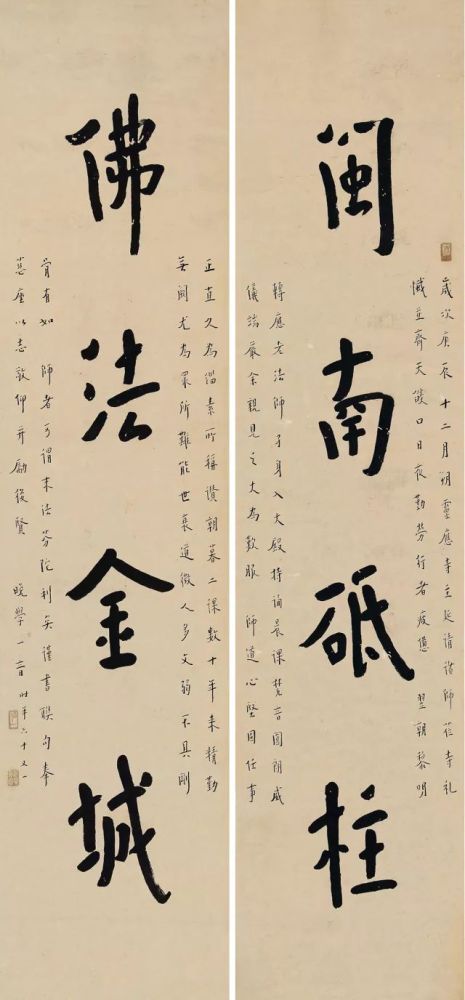 閩南砥柱
歲次庚辰十二月朔靈應寺主延請諸師蒞寺礼
懺並齋天燄口日夜勤勞行者疲憊 翌朝黎明
轉應老法師孑身入大殿持誦晨課梵音圓朗威
儀端嚴余親見之大為歎服 師道心堅固任事
佛法金城
正直久為緇素所稱讚朝暮二課數十年来精勤
無間尤為眾所難能世衰道微人多文弱不具剛
骨有如 師者可謂末法芬陀利矣謹書联句奉
座以志敬仰并勵後賢 晚學一音時年六十又一